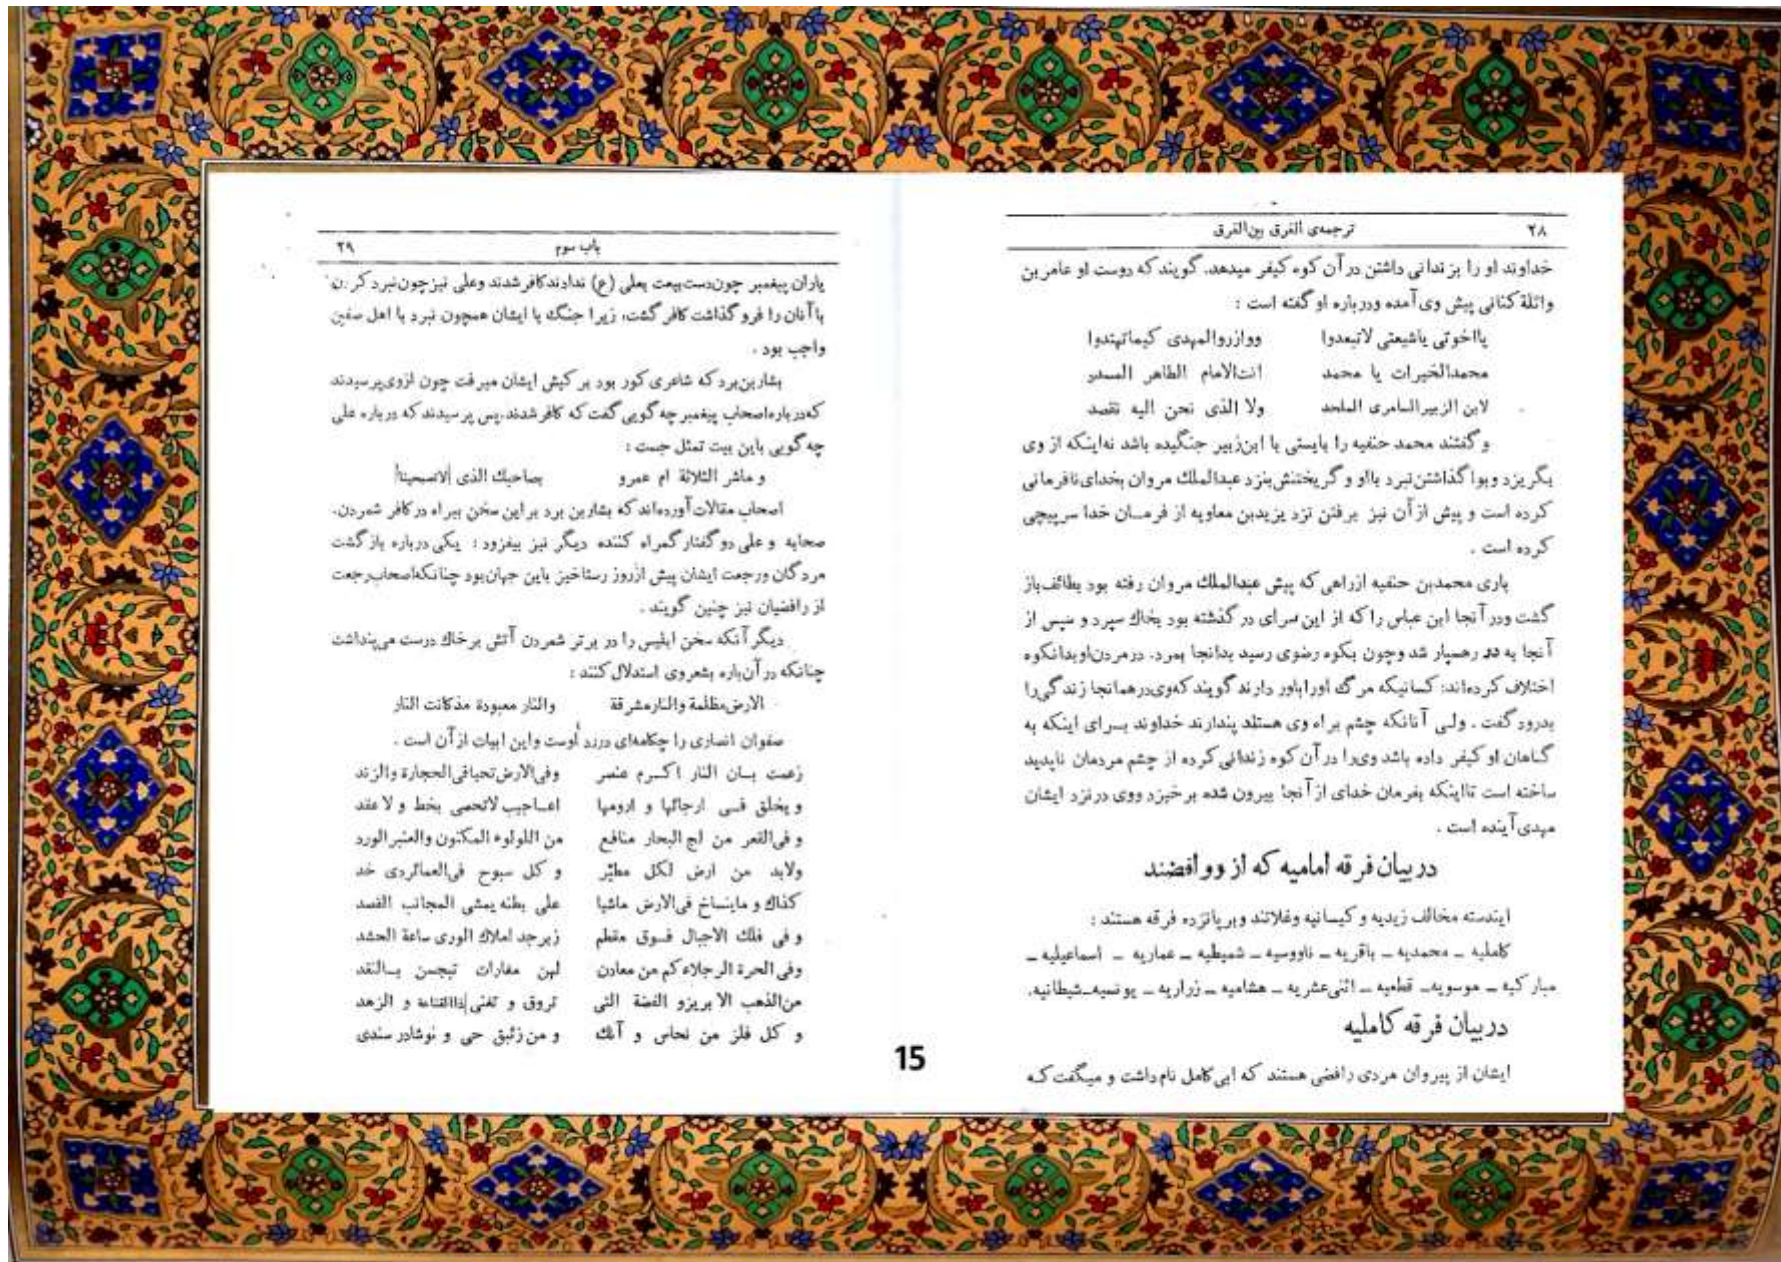 ۲۸ ترجمه‌ی الفرق بین‌الفرق
خداوند او را بزندانی داشتن در آن کوه کیفر میدهد. گویند که دوست او عامر بن
واثلة کنانی پیش وی آمده ودرباره او گفته است :
یااخوتی یاشیعتی لاتبعدوا ووازروالمهدی کیماتهتدوا
محمدالخیرات یا محمد انت‌الامام الطاهر المسدد
لابن الزبیر السامری الملحد ولا الذی نحن الیه نقصد
و گفتند محمد حنفیه را بایستی با ابن‌زبیر جنگیده باشد نه‌اینکه از وی
بگریزد وبوا گذاشتن نبرد بااو و گریختنش بنزد عبدالملك مروان بخدای‌نافرمانی
کرده است و پیش از آن نیز برفتن نزد یزیدبن معاویه از فرمــان خدا سرپیچی
کرده است .
باری محمدبن حنفیه ازراهی که پیش عبدالملك مروان رفته بود بطائف‌باز
گشت ودر آنجا ابن عباس را که از این سرای در گذشته بود بخاك سپرد و سپس از
آنجا به در رهسپار شد وچون بکوه رضوی رسید بدانجا بمرد. درمردن‌اوبدانکوه
اختلاف کرده‌اند: کسانیکه مرگ اوراباور دارند گویند که‌وی‌درهمانجا زندگی‌را
بدرود گفت . ولـی آنانکه چشم براه وی هستند پندارند خداوند بــرای اینکه به
گناهان او کیفر داده باشد وی‌را در آن کوه زندانی کرده از چشم مردمان ناپدید
ساخته است تااینکه بفرمان خدای از آنجا بیرون شده برخیزد ووی درنزد ایشان
مهدی آینده است .
دربیان فرقه امامیه که از روافضند
ایندسته مخالف زیدیه و کیسانیه وغلاتند وبرپانزده فرقه هستند :
کاملیه ــ محمدیه ــ باقریه ــ ناووسیه ــ شمیطیه ــ عماریه ــ اسماعیلیه ــ
مبارکیه ــ موسویه ــ قطعیه ــ اثنی‌عشریه ــ هشامیه ــ زراریه ــ یونسیه ــ شیطانیه.
دربیان فرقه کاملیه
ایشان از پیروان مردی رافضی هستند که ابی‌کامل نام داشت و میگفت کـه
باب سوم ۲۹
یاران پیغمبر چون‌دست‌بیعت بعلی (ع) ندادند کافر شدند وعلی نیزچون‌نبرد کردن
باآنان را فرو گذاشت کافر گشت، زیرا جنگ با ایشان همچون نبرد با اهل صفین
واجب بود .
بشاربن‌برد که شاعری کور بود بر کیش ایشان میرفت چون ازوی‌پرسیدند
که‌درباره‌اصحاب پیغمبر چه گویی گفت که کافر شدند.پس پرسیدند که درباره علی
چه گویی باین بیت تمثل جست :
و ماشر الثلاثة ام عمرو بصاحبك الذی لاتصبحینا
اصحاب مقالات آورده‌اند که بشاربن برد بر این سخن بیراه در کافر شمردن،
صحابه و علی دو گفتار گمراه کننده دیگر نیز بیفزود : یکی درباره بازگشت
مردگان ورجعت ایشان پیش ازروز رستاخیز باین جهان‌بود چنانکه‌اصحاب‌رجعت
از رافضیان نیز چنین گویند .
دیگر آنکه سخن ابلیس را در برتر شمردن آتش برخاك درست می‌پنداشت
چنانکه در آن‌باره بشعر وی استدلال کنند :
الارض‌مظلمة والنارمشرقة والنار معبودة مذکانت النار
صفوان انصاری را چکامه‌ای دررد اوست واین ابیات از آن است .
زعمت بــان النار اکــرم عنصر وفی‌الارض‌تحیافی‌الحجارة والزند
و یخلق فــی ارجائها و ارومها اعــاجیب لاتحصی بخط و لا عقد
و فی‌القعر من لج البحار منافع من اللولوء المکنون والعنبر الورد
ولابد من ارض لکل مطیّر و کل سبوح فی‌العمائرذی خد
کذاك و ماینساخ فی‌الارض ماشیا علی بطنه یمشی المجانب القصد
و فی فلك الاجبال فــوق مقطم زبرجد املاك الوری ساعة الحشد
وفی الحرة الرجلاء کم من معادن لهن مغارات تبجس بــالنقد
من‌الذهب الابریزو الفضة التی تروق و تغنی ذاالقناعة و الزهد
و کل فلز من نحاس و آنك و من زئبق حی و نوشادر سندی
15